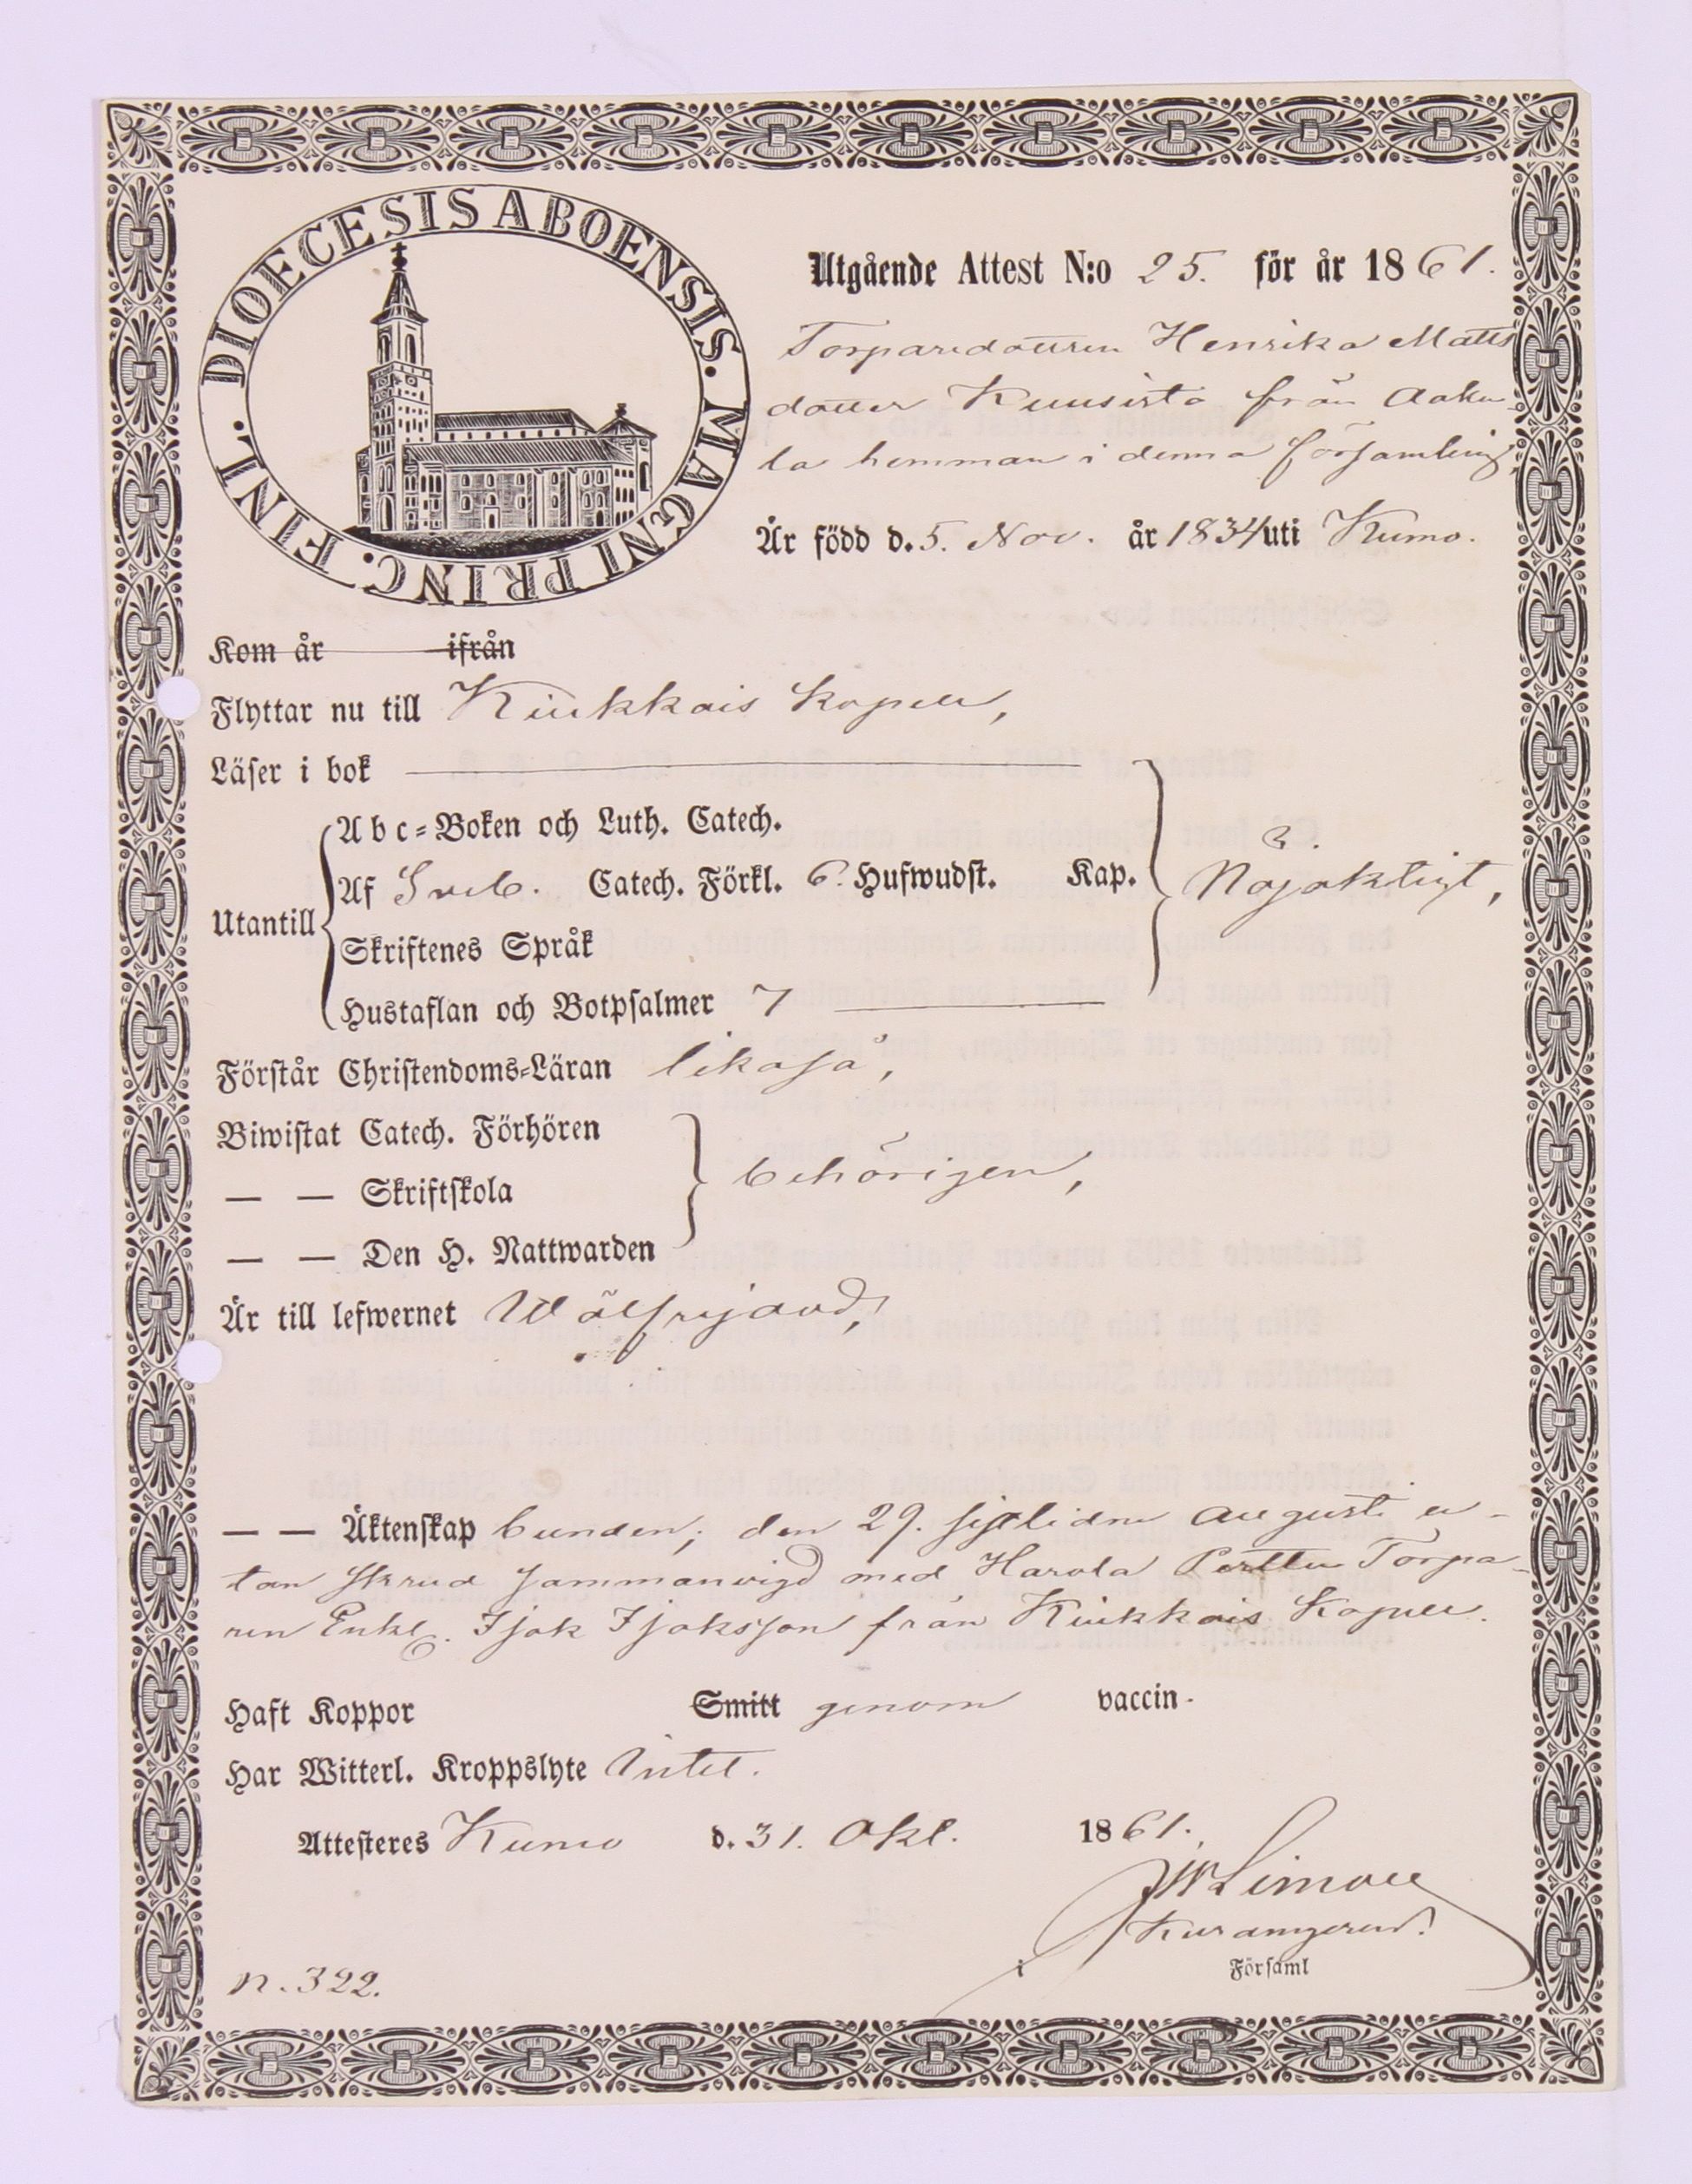 DIOECESIS ABOENSIS. MAGNI PRINC. FINL.
Utgående Attest N:o 25. för år 1861.
Torparedottren Henrika Matts
dotter Kuusisto från Aaku-
la hemman i denna församling,
Är född d. 5. Nov. år 1834 uti Kumo.
Kom år ifrån
Flyttar nu till Kiukkais kapell,
Läser i bok
Utantill
Abc-Boken och Luth. Catech.
Af Sveb. Catech. Förkl. 6. Hufwudst. Kap.
Skriftenes Språk
Hustaflan och Botpsalmer 7
Nöjaktigt,
Förstår Christendoms-Läran likaså,
Biwistat Catech. Förhören
— — Skriftskola
— — Den H. Nattwarden
behörigen,
Är till lefwernet Wälfrejdad,
— — Äktenskap bunden; den 29. sistlidne Augusti u-
tan skrud sammanvigd med Harola Perttu Torpa-
ren Enkl. Isak Isaksson från Kiukkais Kapell.
Haft Koppor Smitt genom vaccin.
Har Witterl. Kroppslyte Intet.
Attesteres Kumo d. 31. Okt. 1861.
Församl
n. 322.